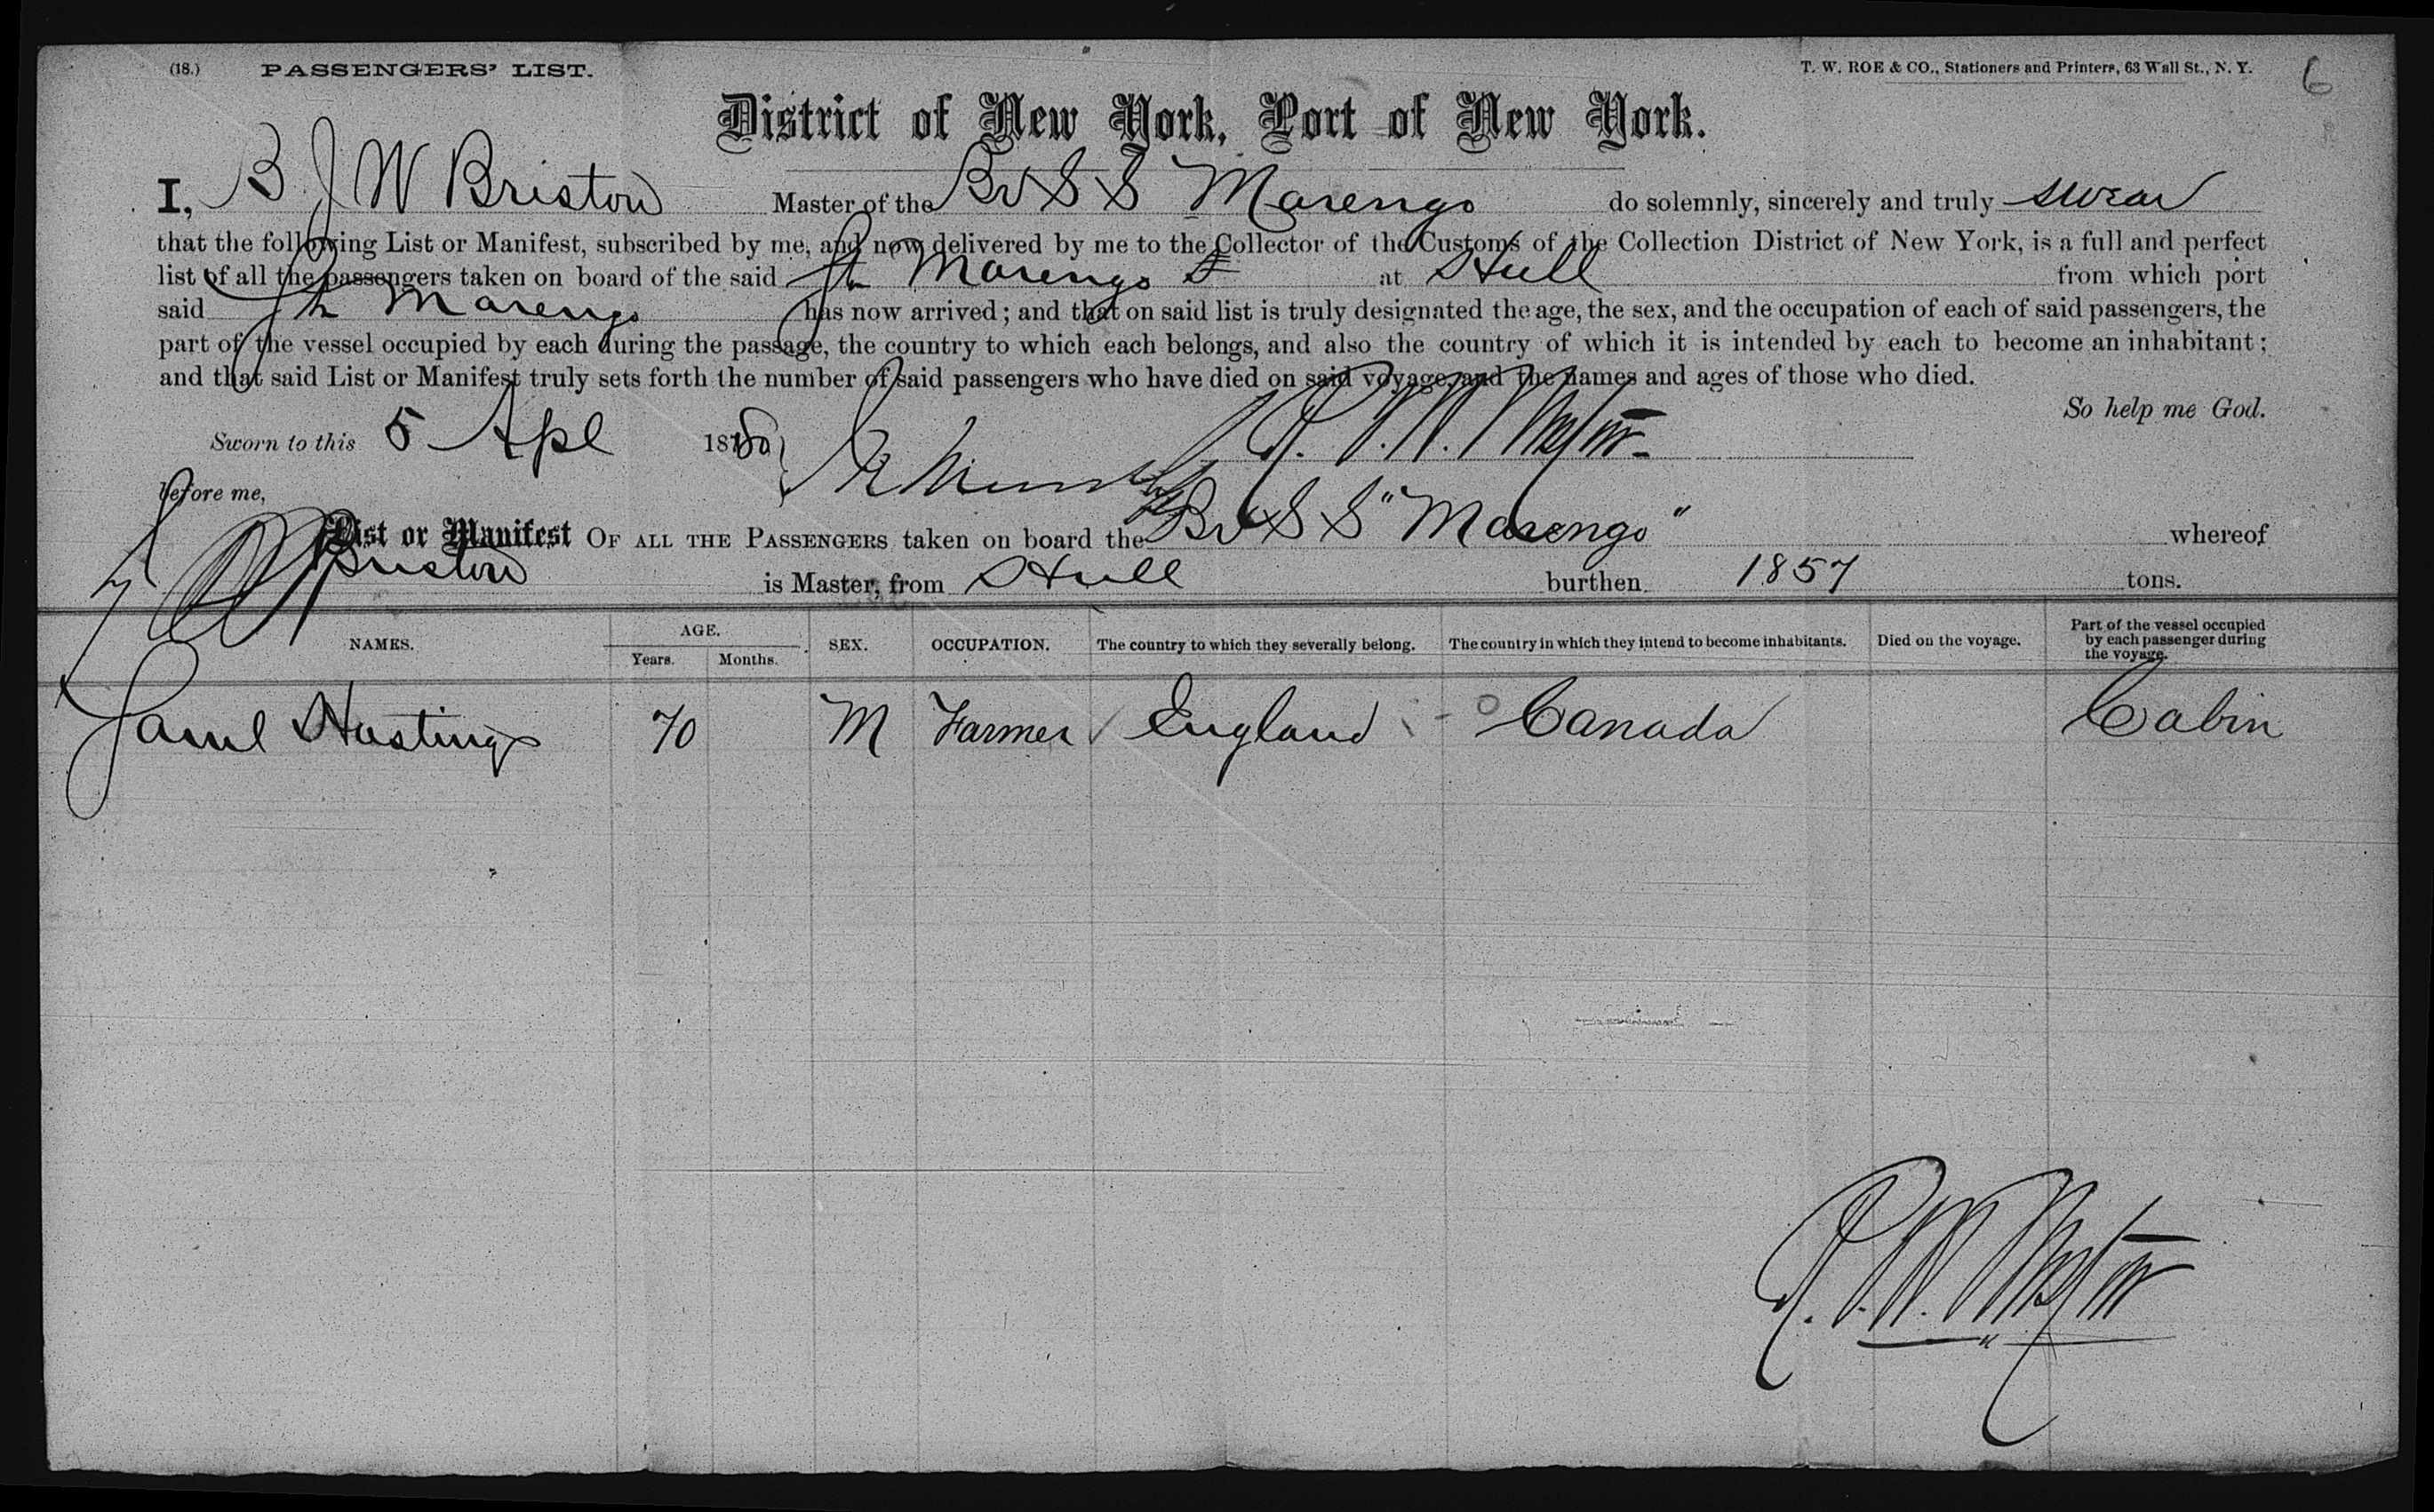 (18.) PASSENGERS' LIST. T. W. ROE & CO., Stationers and Printers, 63 Wall St., N. Y. 6
District of New York, Port of New York.
I, B J W Bristow Master of the Br S S Marengo do solemnly, sincerely and truly swear
that the following List or Manifest, subscribed by me, and now delivered by me to the Collector of the Customs of the Collection District of New York, is a full and perfect
list of all the passengers taken on board of the said Marengo at Hull from which port
said Marengo has now arrived; and that on said list is truly designated the age, the sex, and the occupation of each of said passengers, the
part of the vessel occupied by each during the passage, the country to which each belongs, and also the country of which it is intended by each to become an inhabitant;
and that said List or Manifest truly sets forth the number of said passengers who have died on said voyage, and the names and ages of those who died.
So help me God.
Sworn to this 5 Apl 1880
before me,
List or Manifest OF ALL THE PASSENGERS taken on board the Br S S "Marengo" whereof
Bristow is Master, from Hull burthen 1857 tons.
NAMES. AGE. Years. Months. SEX. OCCUPATION. The country to which they severally belong. The country in which they intend to become inhabitants. Died on the voyage. Part of the vessel occupied by each passenger during the voyage.
Saml Hastings 70 M Farmer England Canada Cabin